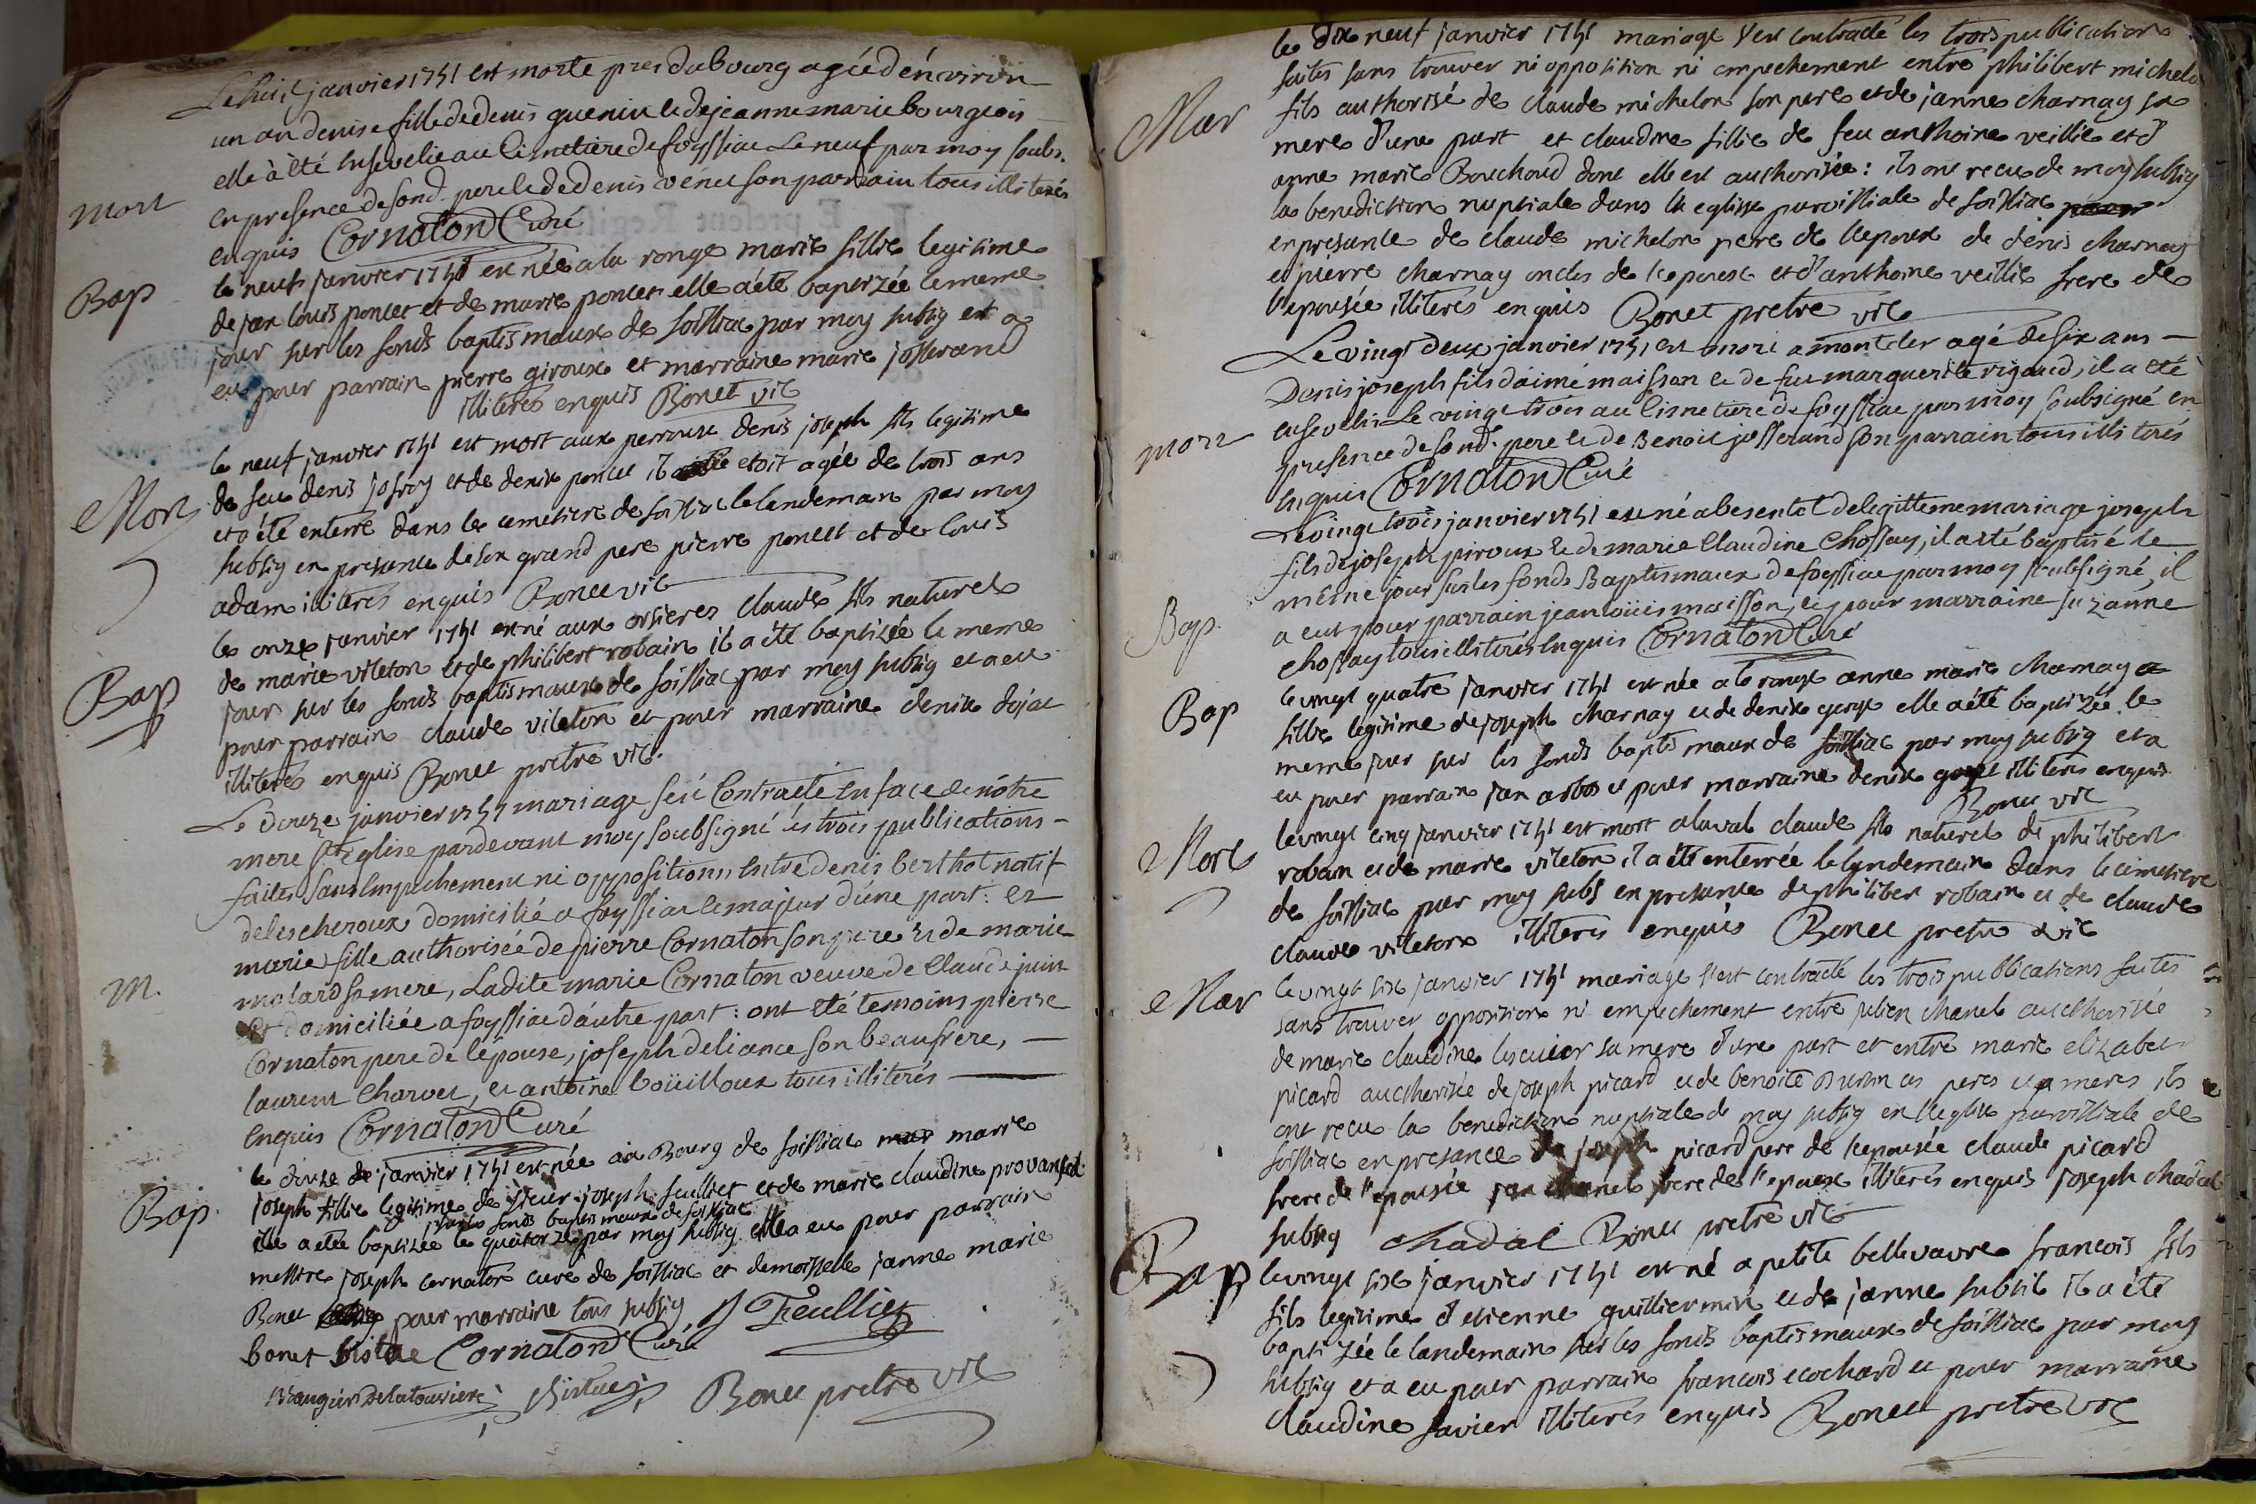 Le huit janvier 1751 est morte pres du bourg agéé d'énviron
un an denise fille de denis guenin et de jeanne marie bourgeois
elle à été ensevelie au Cimetiere de foyssiac Le neuf par moy soubs.
mort
en presence de sond. pere et de denis vénet son parrain tous illiterés
enquis Cornaton Curé
Bap
le neuf janvier 1751 est née a la ronge marie fillie legitime
de jan louis poncet et de marie poncet elle a été baptizée le meme
jour sur les fonds baptismaux de foissiac par moy subsig et a
eu pour parrain pierre giroux et marraine marie josserand
illiterés enquis Bonet vic
le neuf janvier 1751 est mort aux perroux dénis joseph fils legitime
Mort
de feu denis jofroy et de denise poncet il etoit agée de trois ans
et a été enterré dans le cemetiere de foissiac le landemain par moy
subsig en presance de son grand pere pierre poncet et de louis
adam illiterés enquis Bonet vic
le onze janvier 1751 est né aux orsieres claude fils naturel
Bap
de marie vileton et de philibert robain il a été baptizée le meme
jour sur les fonds baptismaux de foissiac par moy subsig et a eu
pour parrain claude vileton et pour marraine denise dojat
illiterés enquis Bonet pretre vic.
Le douze janvier 1751 mariage s'est Contracté en face de nôtre
mere Ste Eglise pardevant moy soubsigné les trois publications
faites sans Empechement ni oppositions Entre denis berthot natif
de lescheroux domicilié a foyssiac et majeur d'une part: et
marie fille authorisée de pierre Cornaton son pere et de marie
M.
molard sa mere, Ladite marie Cornaton veuve de Claude juin
et domiciliée a foyssiac d'autre part: ont été temoins pierre
Cornaton pere de l'épouse, joseph deliance son beaufrere,
laurent Charvet, et antoine boüilloux tous illiterés
Enquis Cornaton Curé
le douze de janvier 1751 est née au Bourg de foissiac marie
Bap.
joseph fillie legitime de sieur joseph feulliet et de marie claudine provansal
sur les fonds baptismaux de foissiac
elle a été baptizée le quatorze par moy subsig elle a eu pour parrain
messire joseph cornaton curé de foissiac et demoiselle janne marie
Bonet pour marraine tous subsig J Feulliet
bonet Cornaton Curé
Bonet pretre vic
le dix neuf janvier 1751 mariage s'est contracté les trois publications
faites sans trouver ni opposition ni empechement entre philibert michelon
Mar
fils authorisé de claude michelon son pere et de janne charnay sa
mere d'une part et claudine fillie de feu anthoine veillie et d'
anne marie Bouchoud dont elle est authorisée: ils ont recu de moy subsig
la benediction nuptiale dans la eglise paroissiale de foissiac
en presance de claude michelon pere de l'epoux de denis charnay
et pierre charnay oncles de l'epoux et d'anthoine veillie frere de
l'epousée illiterés enquis Bonet pretre vic
Le vingt deux janvier 1751 est mort a montcler agé de six ans
Denis joseph fils d'aimé maisson et de feu marguerite rigaud, il a été
enseveli Le vingt trois au Cimetiere de foyssiac par moy soubsigné en
mort
presence de sond. pere et de Benoit josserand son parrain tous illiterés
Enquis Cornaton Curé
Le vingt trois janvier 1751 est né a besentet de legittime mariage joseph
fils de joseph piroux et de marie Claudine Chossay, il a été baptisé le
même jour sur les fonds Baptismaux de foyssiac par moy soubsigné, il
Bap.
a eut pour parrain jean loüis maisson, et pour marraine suzanne
Chossay tous illiterés Enquis Cornaton Curé
le vingt quatre janvier 1751 est née a la ronge anne marie charnay
Bap
fillie legitime de joseph charnay et de denise goyet elle a été baptizée le
meme jour sur les fonds baptismaux de foissiac par moy subsig et a
eu pour parrain jan arbos et pour marraine denise goyet illiterés enquis
Bonet vic
Mort
le vingt cinq janvier 1751 est mort a laval claude fils naturel de philibert
robain et de marie vileton il a été enterrée le landemain dans le cimetiere
de foissiac par moy subs en presance de philibert robain et de claude
claude vileton illiterés enquis Bonet pretre vic
Mar
le vingt six janvier 1751 mariage s'est contracté les trois publications faites
sans trouver opposition ni empechement entre julien chanel aucthorisée
de marie claudine lescuier sa mere d'une part et entre marie elizabet
picard aucthorisée de joseph picard et de benoite Buenin ces peres et meres ils
ont recu la benediction nuptiale de moy subsig en l'eglise paroissiale de
foissiac en presance de joseph picard pere de l'epousée claude picard
frere de l'epousée jan chanel frere de l'epoux illiterés enquis joseph chadal
subsig chadal Bonet pretre vic
Bap
le vingt six janvier 1751 est né a petite bellevavre francois fils
fils legitime d'etienne guilliermin et de janne subtil il a été
baptizée le landemain sur les fonds baptismaux de foissiac par moy
subsig et a eu pour parrain francois ecochard et pour marraine
claudine savier illiterés enquis Bonet pretre vic